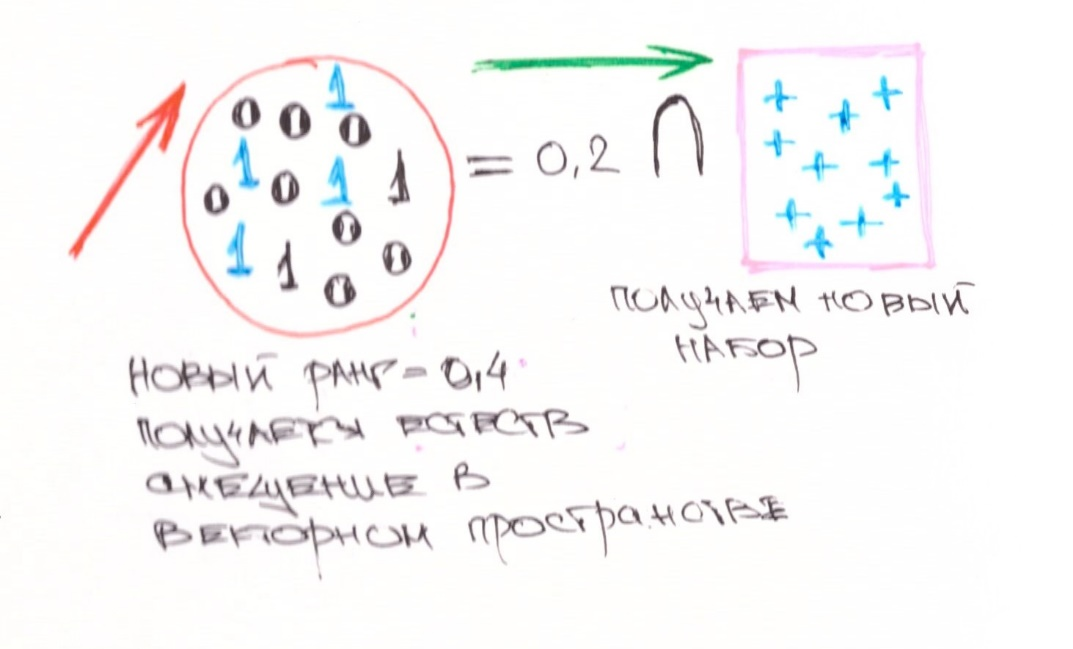 1
0 0 0
1
0 0 1 1
0
1 1 0
0
= 0,2 ∩
+ + + + + + + + + +
ПОЛУЧАЕМ НОВЫЙ
НАБОР
НОВЫЙ РАНГ = 0,4
ПОЛУЧАЕТСЯ ЕСТЕСТВ
СМЕЩЕНИЕ В
ВЕКТОРНОМ ПРОСТРАНСТВЕ